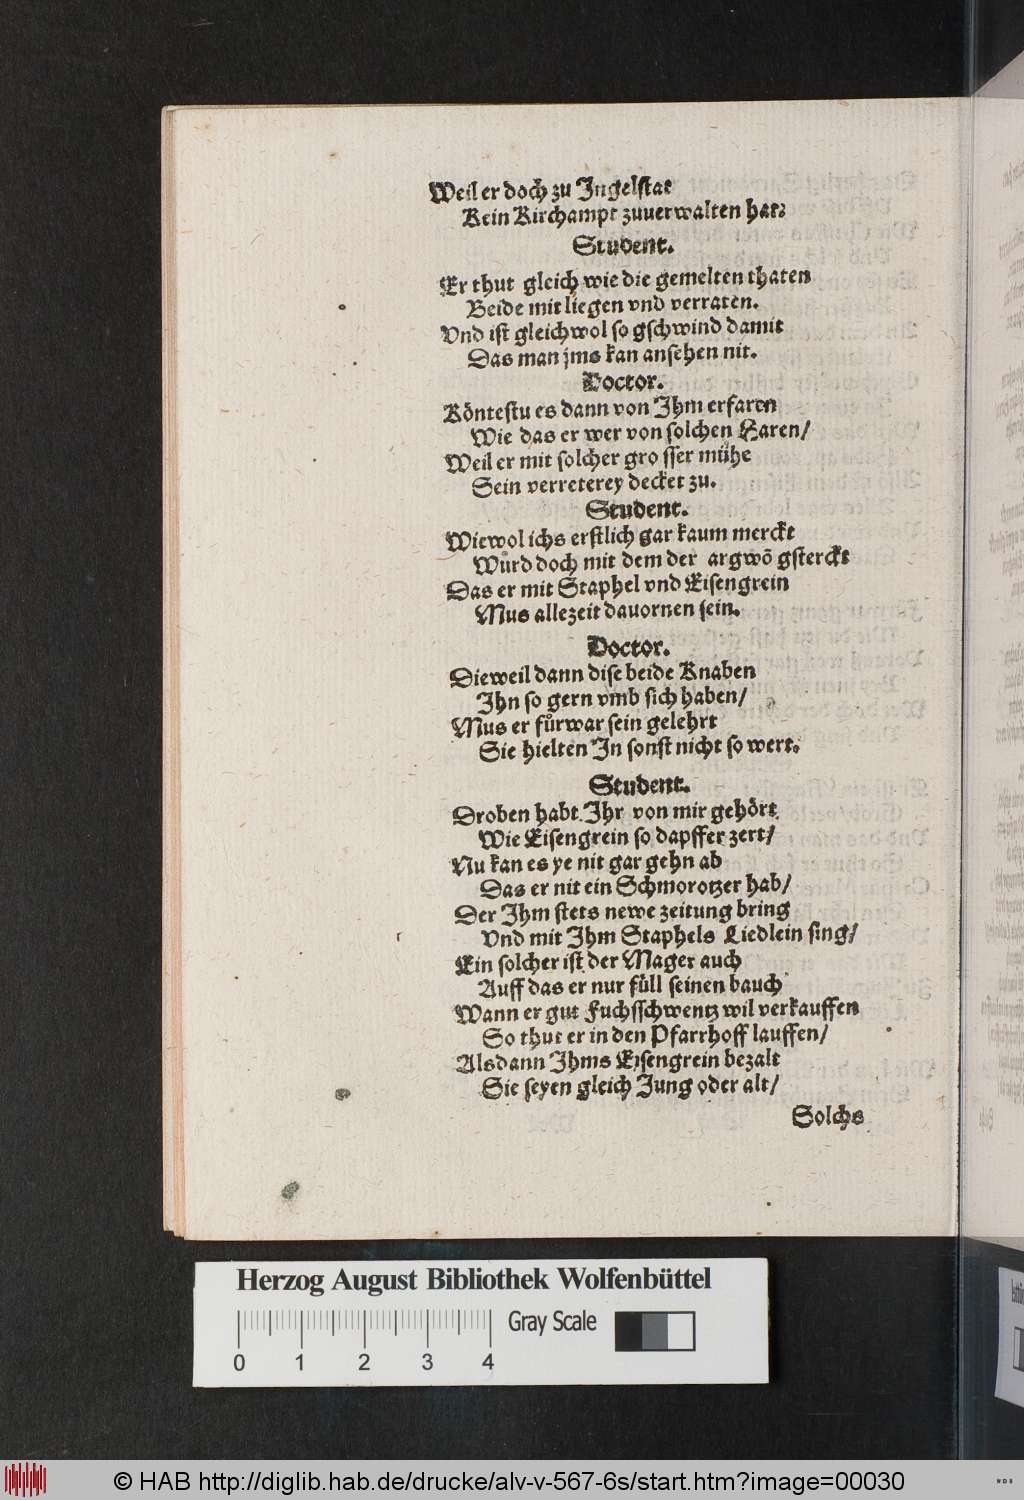 Weil er doch zu Ingelstat
Kein Kirchampt zuuerwalten hat?
Student.
Er thut gleich wie die gemelten thaten
Beide mit liegen vnd verraten.
Vnd ist gleichwol so gschwind damit
Das man jms kan ansehen nit.
Doctor.
Köntestu es dann von Ihm erfaren
Wie das er wer von solchen Haren/
Weil er mit solcher grosser mühe
Sein verreterey decket zu.
Student.
Wiewol ichs erstlich gar kaum merckt
Würd doch mit dem der argwō gsterckt
Das er mit Staphel vnd Eisengrein
Mus allezeit dauornen sein.
Doctor.
Dieweil dann dise beide Knaben
Ihn so gern vmb sich haben/
Mus er fůrwar sein gelehrt
Sie hielten In sonst nicht so wert.
Student.
Droben habt Ihr von mir gehört
Wie Eisengrein so dapffer zert/
Nu kan es ye nit gar gehn ab
Das er nit ein Schmorotzer hab/
Der Ihm stets newe zeitung bring
Vnd mit Ihm Staphels Liedlein sing/
Ein solcher ist der Mager auch
Auff das er nur füll seinen bauch
Wann er gut Fuchsschwentz wil verkauffen
So thut er in den Pfarrhoff lauffen/
Alsdann Ihms Eisengrein bezalt
Sie seyen gleich Jung oder alt/
Solchs
Herzog August Bibliothek Wolfenbüttel
Gray Scale
0 1 2 3 4
© HAB http://diglib.hab.de/drucke/alv-v-567-6s/start.htm?image=00030